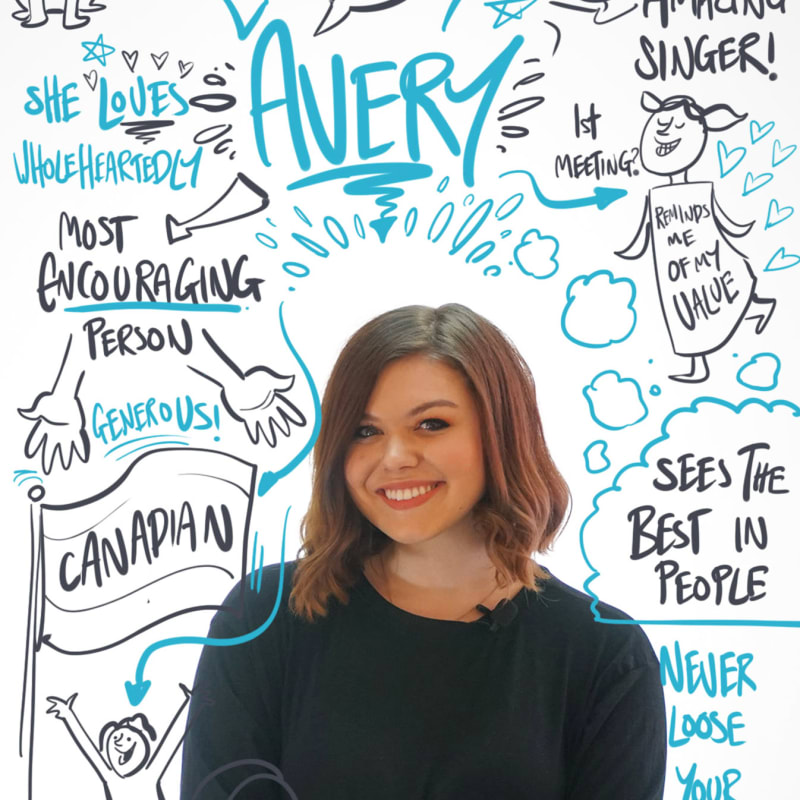 AMAZING
SINGER!
AVERY
SHE LOVES
WHOLEHEARTEDLY
1st
MEETING?
REMINDS
ME
OF MY
VALUE
MOST
ENCOURAGING
PERSON
GENEROUS!
CANADIAN
SEES THE
BEST IN
PEOPLE
NEVER
LOOSE
YOUR